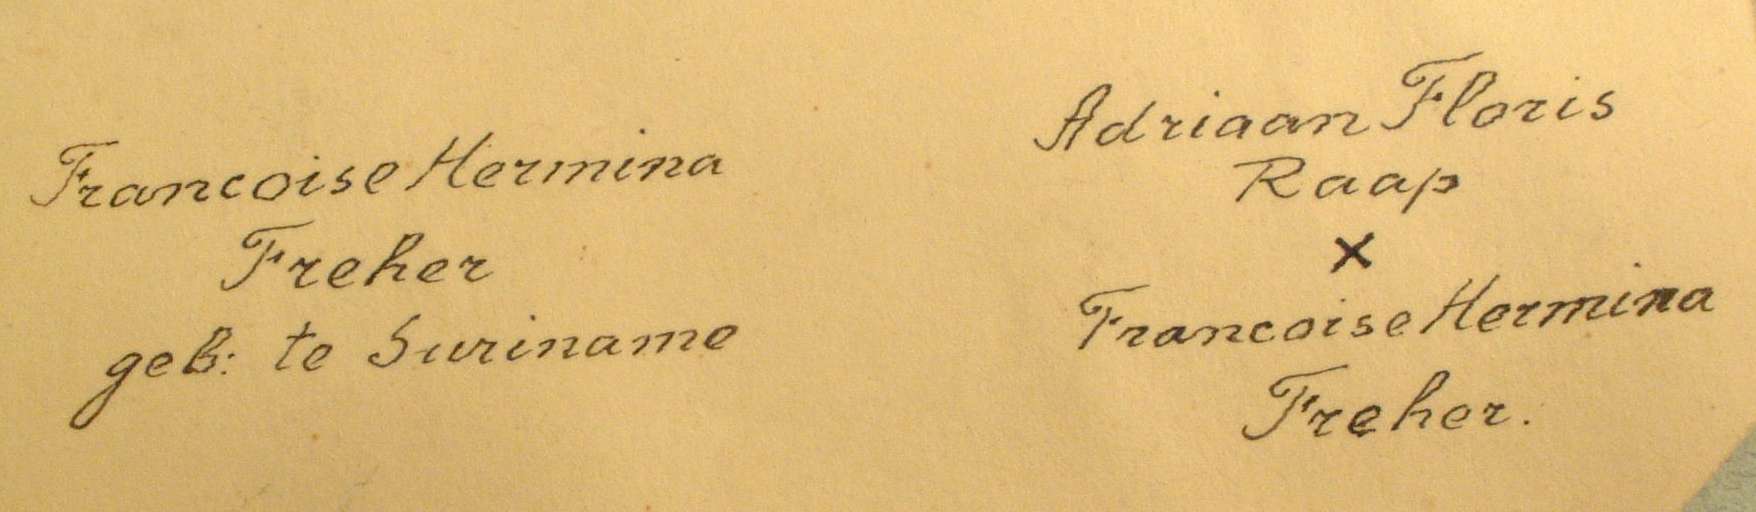 Francoise Hermina
Freher
geb: te Suriname
Adriaan Floris
Raap
×
Francoise Hermina
Freher.